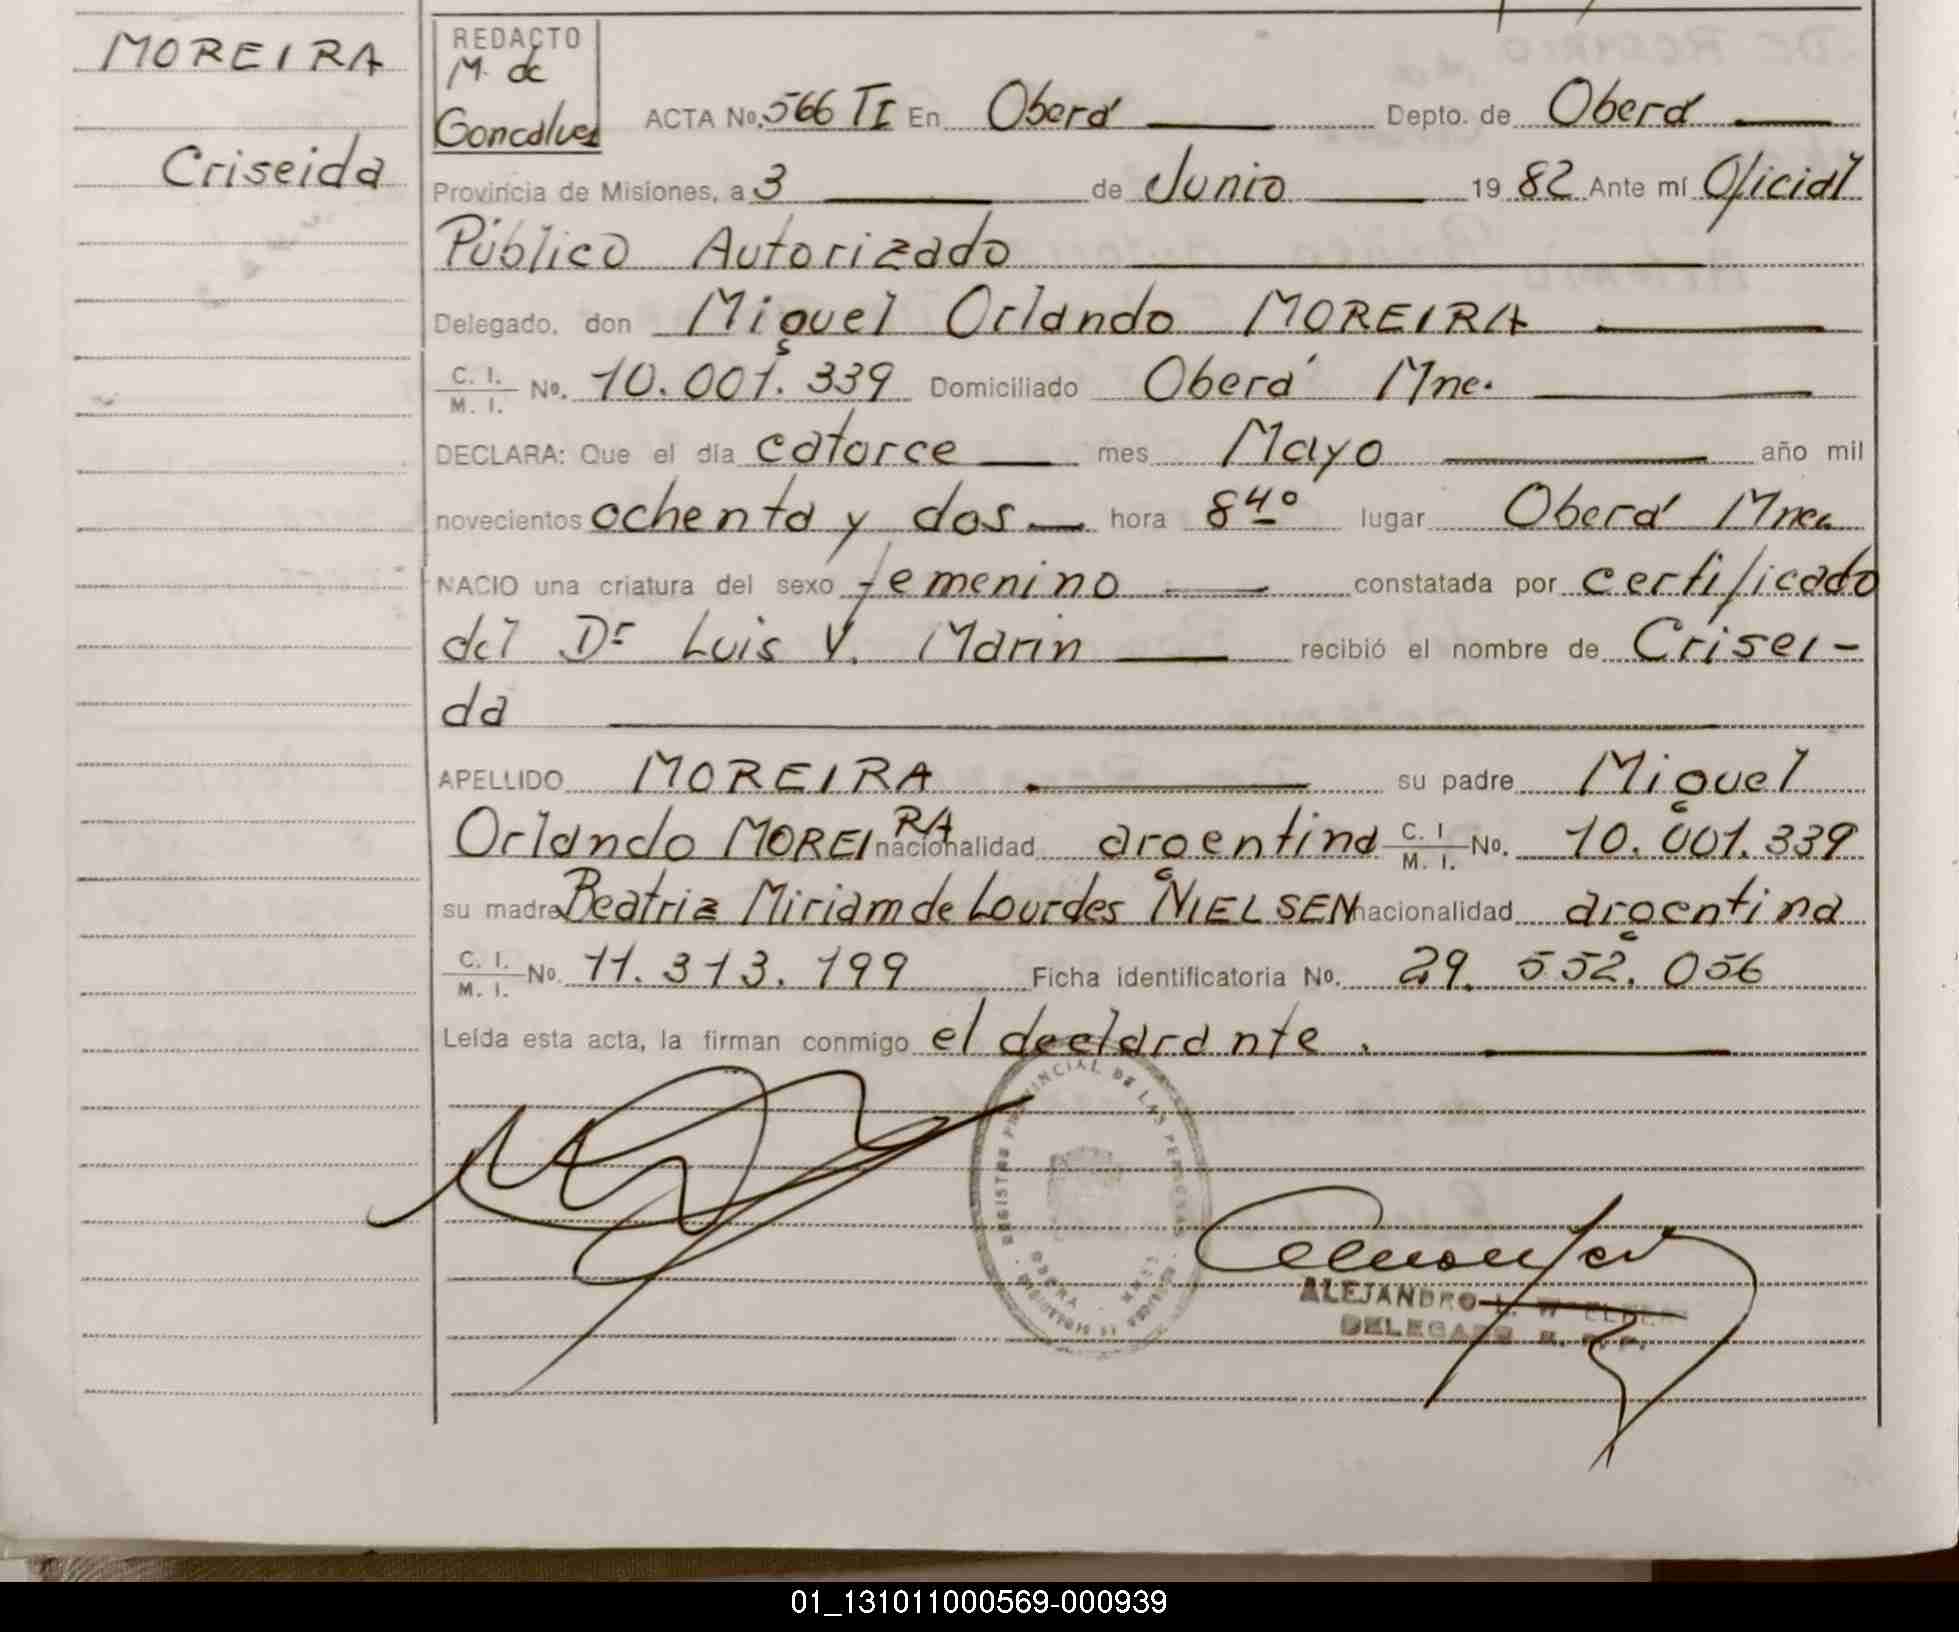 MOREIRA
Criseida
REDACTO
M. de
Goncalves
ACTA No. 566 TI En Oberá Depto. de Oberá
Provincia de Misiones, a 3 de Junio 19 82 Ante mí Oficial
Público Autorizado
Delegado, don Miguel Orlando MOREIRA
C. I. / M. I. No. 10.001.339 Domiciliado Oberá Mnes.
DECLARA: Que el día catorce mes Mayo año mil
novecientos ochenta y dos hora 8 40 lugar Oberá Mnes
NACIO una criatura del sexo femenino constatada por certificado
del Dr Luis V. Marin recibió el nombre de Crisei-
da
APELLIDO MOREIRA su padre Miguel
Orlando MOREIRA nacionalidad argentina C. I. / M. I. No. 10.001.339
su madre Beatriz Miriam de Lourdes NIELSEN nacionalidad argentina
C. I. / M. I. No. 11.313.199 Ficha identificatoria No. 29.552.056
Leída esta acta, la firman conmigo el declarante.
REGISTRO PROVINCIAL DE LAS PERSONAS
OBERA
MISIONES
ALEJANDRO
DELEGADO R. P. P.
01_131011000569-000939